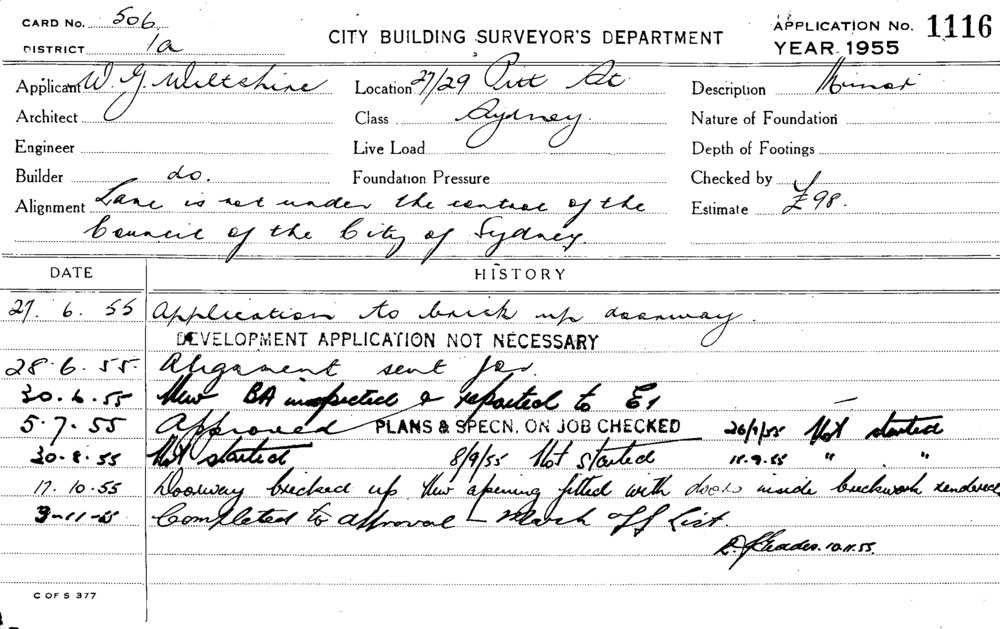 CARD No. 506
DISTRICT 1a
CITY BUILDING SURVEYOR'S DEPARTMENT
APPLICATION No. 1116
YEAR 1955
Applicant W. G. Wiltshire Location 27/29 Pitt St Description Minor
Architect Class Sydney. Nature of Foundation
Engineer Live Load Depth of Footings
Builder do. Foundation Pressure Checked by
Alignment Lane is not under the control of the Estimate £98.
Council of the City of Sydney.
DATE HISTORY
27. 6. 55 Application to brick up doorway.
DEVELOPMENT APPLICATION NOT NECESSARY
28.6.55. Alignment sent for.
30.6.55 New BA inspected & reported to E1
5.7.55 Approved PLANS & SPECN. ON JOB CHECKED 26/9/55 Not started
30.8.55 Not started 8/9/55 Not started 15.9.55 " "
17.10.55 Doorway bricked up New opening fitted with door inside brickwork rendered
3-11-55 Completed to approval - Mark off List.
10.11.55.
C OF S 377